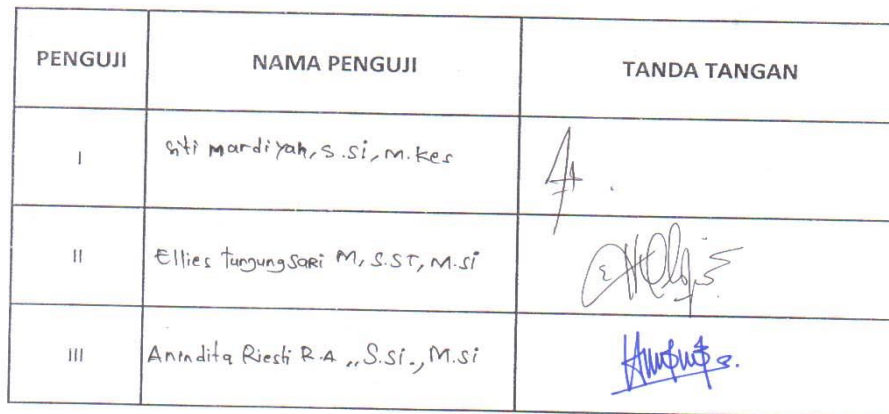 PENGUJI NAMA PENGUJI TANDA TANGAN
I Siti Mardiyah, S.Si, M.Kes
II Ellies TunjungSARI M, S.ST, M.Si
III Anindita Riesti R.A ,, S.Si., M.Si